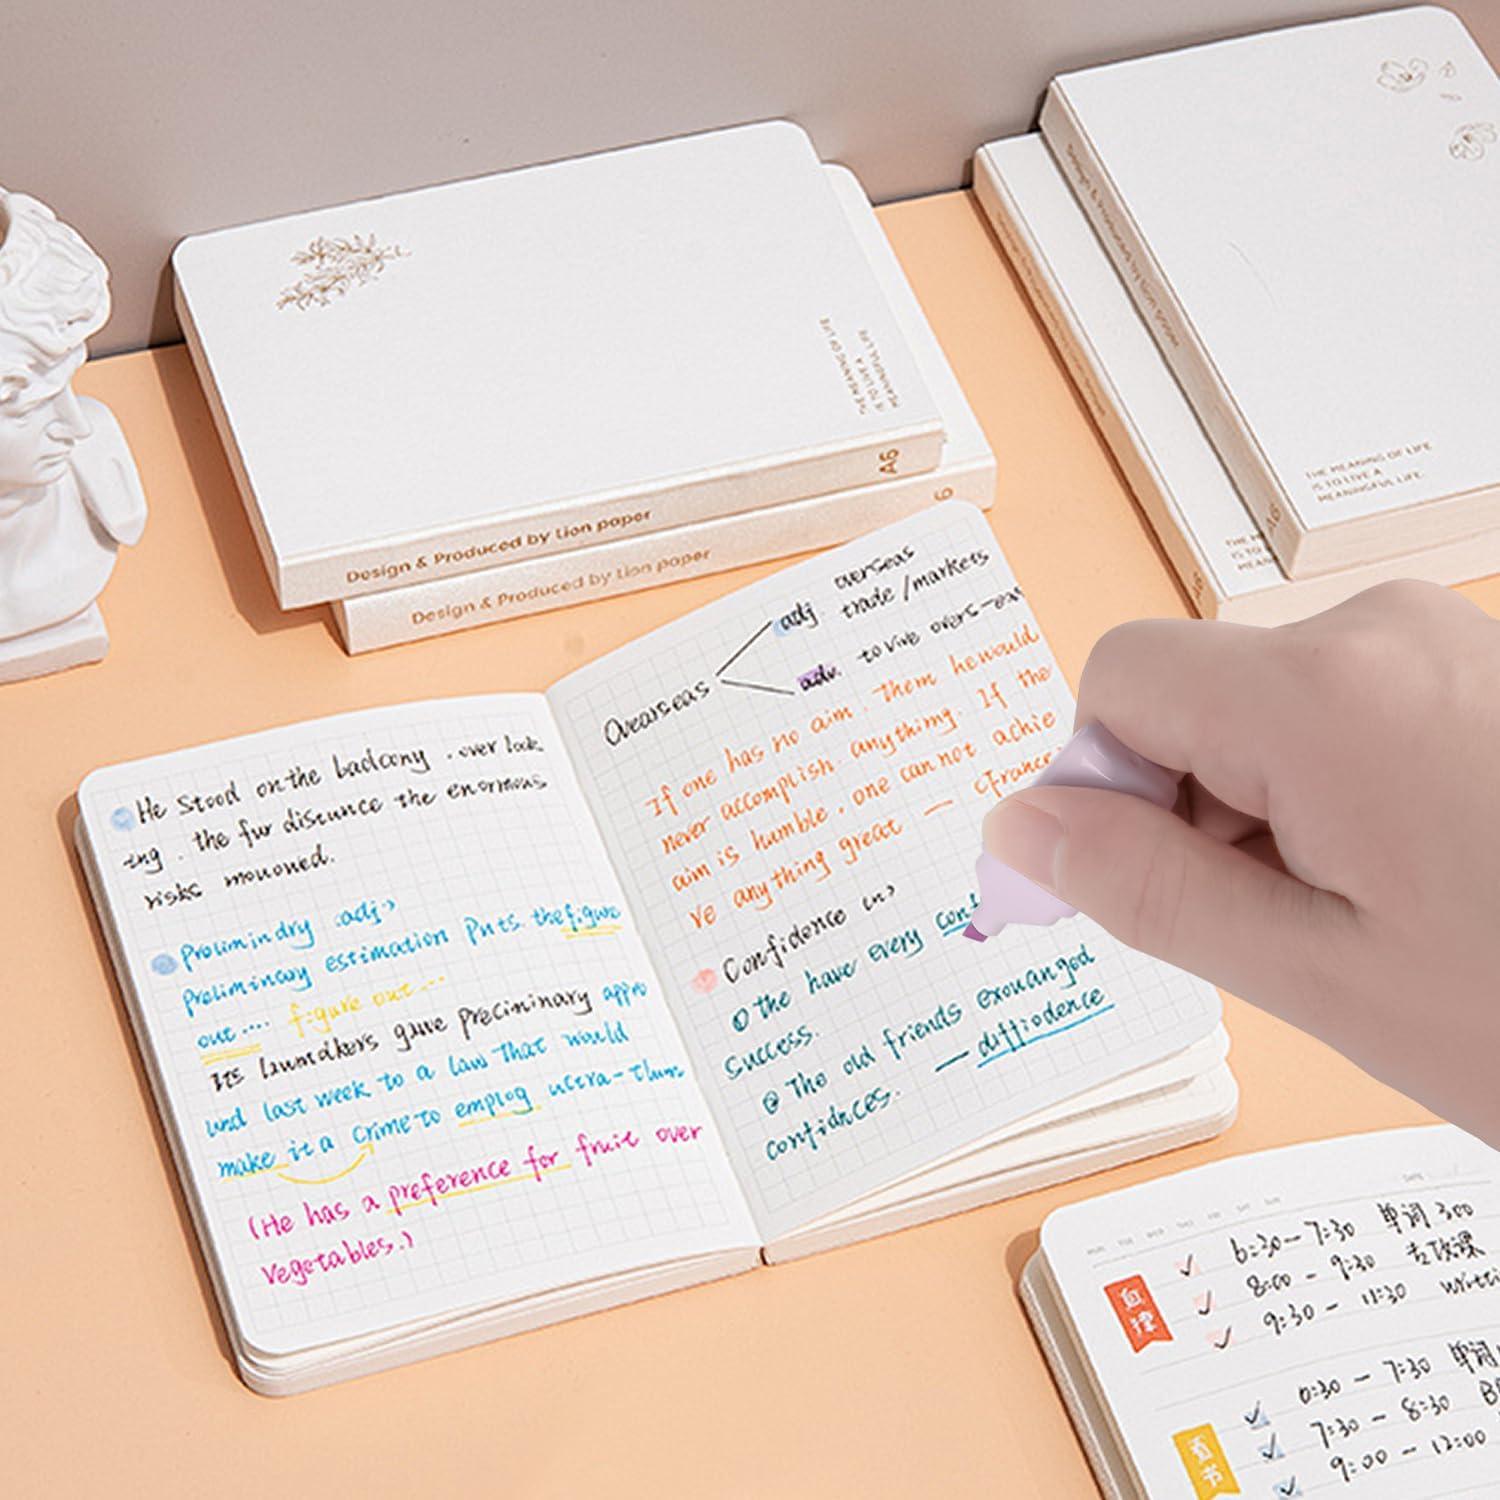 THE MEANING OF LIFE
IS TO LIVE A
MEANINGFUL LIFE
A5
Design & Produced by Lion paper
6
Design & Produced by Lion paper
THE MEANING OF LIFE
IS TO LIVE A
MEANINGFUL LIFE.
A6
A6
He Stood on the badcony . over look
-ing . the fur discunce the enormous
risks mououed.
Prolimindry .adj>
Preliminay estimation puts the figure
out .... figure out ...
Its lawmakers gave precininary appro
und last week to a law that would
make it a crime to employ ultra-thin
(He has a preference for fruit over
vegetables.)
Overseas
adj overseas
trade/markets
adv. to vive overs-eas
If one has no aim . them he would
never accomplish. anything. If the
aim is humble, one can not achie
ve anything great — cFrance
Confidence <n>
① the have every con
success.
② The old friends exouangod
confidnces. — diffiodence
自律
6:30 - 7:30 单词 300
8:00 - 9:30 专项课
9:30 - 11:30 Writi
看书
6:30 - 7:30 单词
7:30 - 8:30
9:00 - 12:00